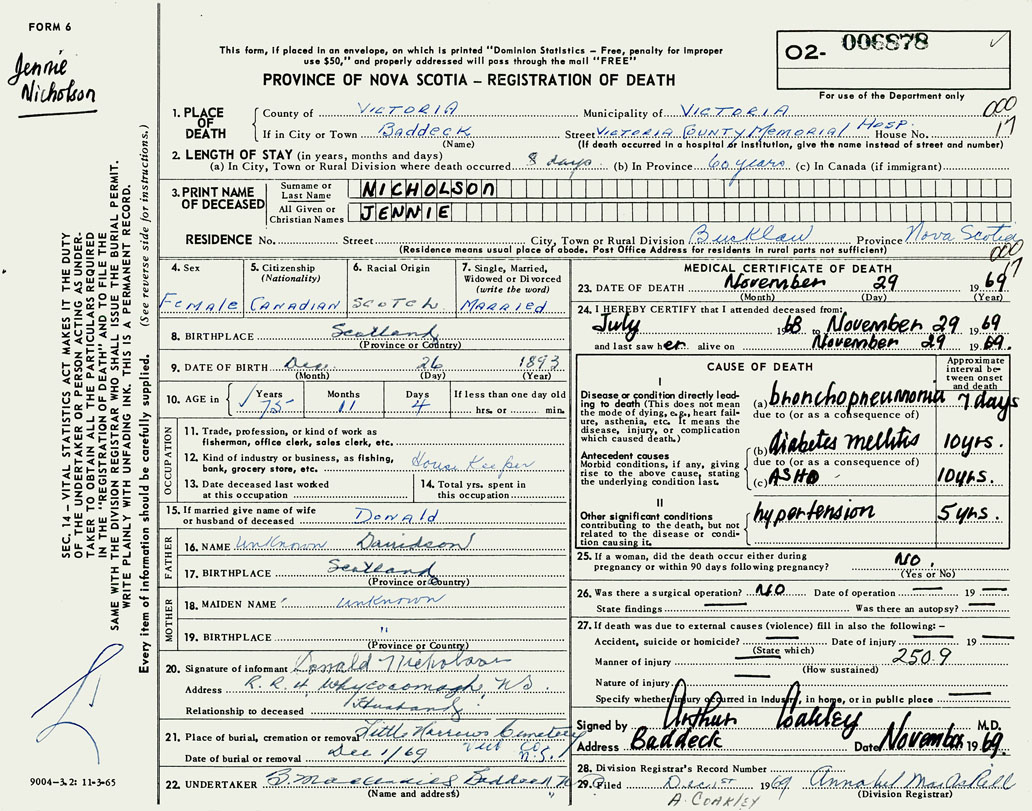 FORM 6
Jennie
Nicholson
This form, if placed in an envelope, on which is printed "Dominion Statistics – Free, penalty for improper
use $50," and properly addressed will pass through the mail "FREE"
PROVINCE OF NOVA SCOTIA – REGISTRATION OF DEATH
02- 006878 ✓
For use of the Department only
000
17
SEC. 14 – VITAL STATISTICS ACT MAKES IT THE DUTY
OF THE UNDERTAKER OR PERSON ACTING AS UNDER-
TAKER TO OBTAIN ALL THE PARTICULARS REQUIRED
IN THE "REGISTRATION OF DEATH" AND TO FILE THE
SAME WITH THE DIVISION REGISTRAR WHO SHALL ISSUE THE BURIAL PERMIT.
WRITE PLAINLY WITH UNFADING INK. THIS IS A PERMANENT RECORD.
Every item of information should be carefully supplied. (See reverse side for instructions.)
1. PLACE OF DEATH County of VICTORIA Municipality of VICTORIA
If in City or Town Baddeck Street VICTORIA COUNTY MEMORIAL HOSP. House No.
(Name) (If death occurred in a hospital or institution, give the name instead of street and number)
2. LENGTH OF STAY (in years, months and days)
(a) In City, Town or Rural Division where death occurred 8 days (b) In Province 60 years (c) In Canada (if immigrant)
3. PRINT NAME OF DECEASED Surname or Last Name NICHOLSON
All Given or Christian Names JENNIE
RESIDENCE No. Street City, Town or Rural Division Bucklaw Province Nova Scotia
(Residence means usual place of abode. Post Office Address for residents in rural parts not sufficient)
000
17
4. Sex Female
5. Citizenship (Nationality) CANADIAN
6. Racial Origin SCOTCH
7. Single, Married, Widowed or Divorced (write the word) MARRIED
8. BIRTHPLACE Scotland
(Province or Country)
9. DATE OF BIRTH Dec. 26 1893
(Month) (Day) (Year)
10. AGE in ✓ Years 75 Months 11 Days 4 If less than one day old hrs. or min.
OCCUPATION
11. Trade, profession, or kind of work as
fisherman, office clerk, sales clerk, etc.
12. Kind of industry or business, as fishing,
bank, grocery store, etc. House Keeper
13. Date deceased last worked
at this occupation
14. Total yrs. spent in
this occupation
15. If married give name of wife
or husband of deceased Donald
FATHER
16. NAME unknown Davidson
17. BIRTHPLACE Scotland
(Province or Country)
MOTHER
18. MAIDEN NAME unknown
19. BIRTHPLACE "
(Province or Country)
20. Signature of informant Donald Nicholson
Address R.R.4, Whycocomagh, N.S.
Relationship to deceased Husband
21. Place of burial, cremation or removal Little Narrows Cemetery
Vict Co. N.S.
Date of burial or removal Dec 1/69
22. UNDERTAKER Baddeck
(Name and address)
9004–3.2: 11-3-65
MEDICAL CERTIFICATE OF DEATH
23. DATE OF DEATH November 29 1969
(Month) (Day) (Year)
24. I HEREBY CERTIFY that I attended deceased from:
July 1968 to November 29 1969
and last saw her alive on November 29 1969.
CAUSE OF DEATH
Approximate interval be-tween onset and death
I
Disease or condition directly lead-
ing to death (This does not mean
the mode of dying, e.g., heart fail-
ure, asthenia, etc. It means the
disease, injury, or complication
which caused death.)
(a) bronchopneumonia 7 days
due to (or as a consequence of)
Antecedent causes
Morbid conditions, if any, giving
rise to the above cause, stating
the underlying condition last.
(b) diabetes mellitis 10yrs.
due to (or as a consequence of)
(c) ASHD 10yrs.
II
Other significant conditions
contributing to the death, but not
related to the disease or condi-
tion causing it.
hypertension 5 yrs.
25. If a woman, did the death occur either during
pregnancy or within 90 days following pregnancy? NO.
(Yes or No)
26. Was there a surgical operation? NO Date of operation — 19 —
State findings — Was there an autopsy? —
27. If death was due to external causes (violence) fill in also the following: –
Accident, suicide or homicide? — Date of injury — 19 —
(State which)
Manner of injury — 250.9
(How sustained)
Nature of injury —
Specify whether injury occurred in Industry, in home, or in public place —
Signed by Arthur Coakley M.D.
Address Baddeck Date November 1969.
28. Division Registrar's Record Number
29. Filed Dec 1st 1969 Annabel MacAskill
(Division Registrar)
A. COAKLEY